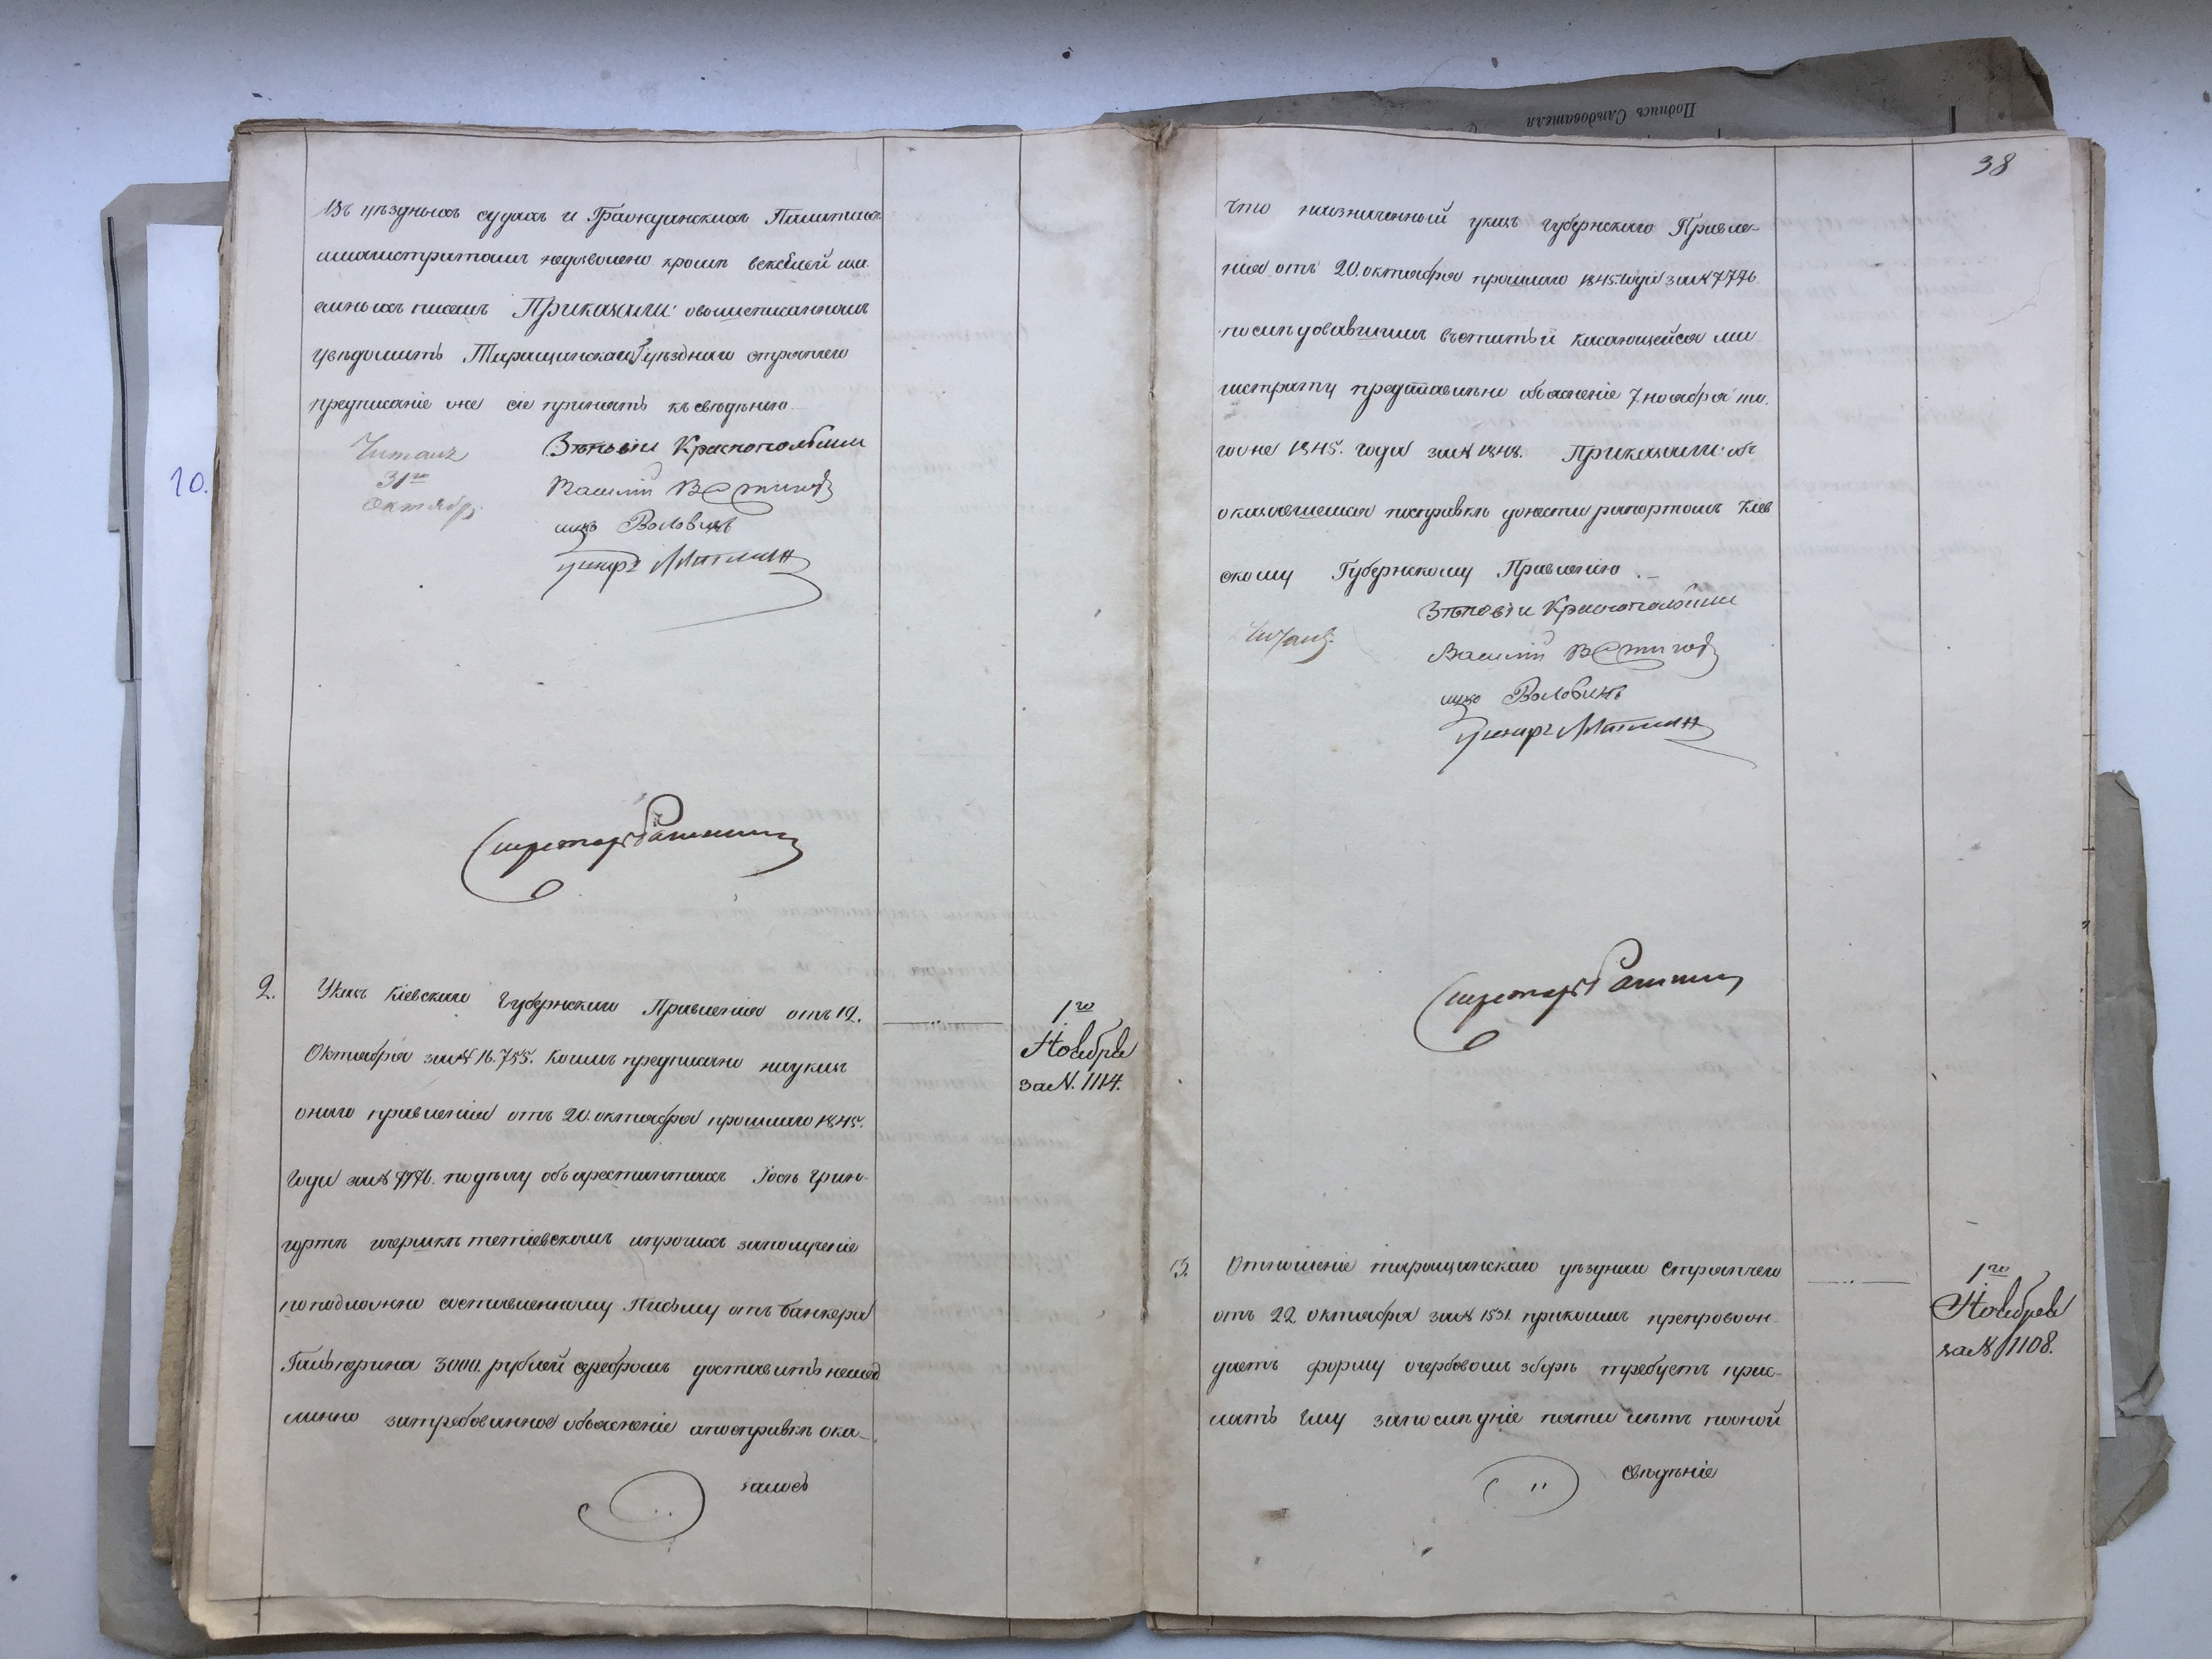 въ уѣздныхъ судахъ и Гражданскихъ Палатахъ
магистратамъ недозволено кромѣ векселей за
емныхъ писемъ Приказали: овышеписанномъ
увѣдомить Таращанскаго уѣзднаго стряпчего
предписаніе же сіе принять къ сведѣнію
Читалъ
31го
Октября
Зѣновіи Краснопольскии
Василій
Воловикъ
Секретарь
10.
2.
Указъ Кіевскаго Губернскаго Правленія отъ 12.
Октября за № 16.755. коимъ предписано науказъ
онаго правленія отъ 20. октября прошлаго 1845.
Года за № 7776. подѣлу объ арестантахъ Іосѣ Грин-
гуртѣ игершкѣ тетіевскомъ ипрочихъ заполученіе
поподложно составленному Письму отъ банкера
Гальперина 3000. рублей сребромъ доставить немед
ленно затребованное объясненіе апосправкѣ ока-
залось
1го
Ноября
за N. 1114.
38
Что назначенный указъ Губернскаго Правле-
нія отъ 20. октября прошлаго 1845. Года за № 7776
послѣдовавшимъ въстатьѣ касающейся ма
гистрату представлено объясненіе 7. ноября то.
гоже 1845. года за № 1848. Приказали: объ
оказавшемся посправкѣ донести рапортомъ Кіев
скому Губернскому Правленію.
Читалъ.
Зѣновіи Краснопольскии
Василій
Воловикъ
Секретарь
3.
Отношеніе таращанскаго уѣзднаго Стряпчего
отъ 22 октября за № 1531. прикоимъ препровож-
даетъ форму огербовомъ зборѣ требуетъ прис-
лать Ему запослѣдніе пять лѣтъ пооной
Свѣдѣніе
1го
Ноября
за № 1108.
Подпись Слѣдователя